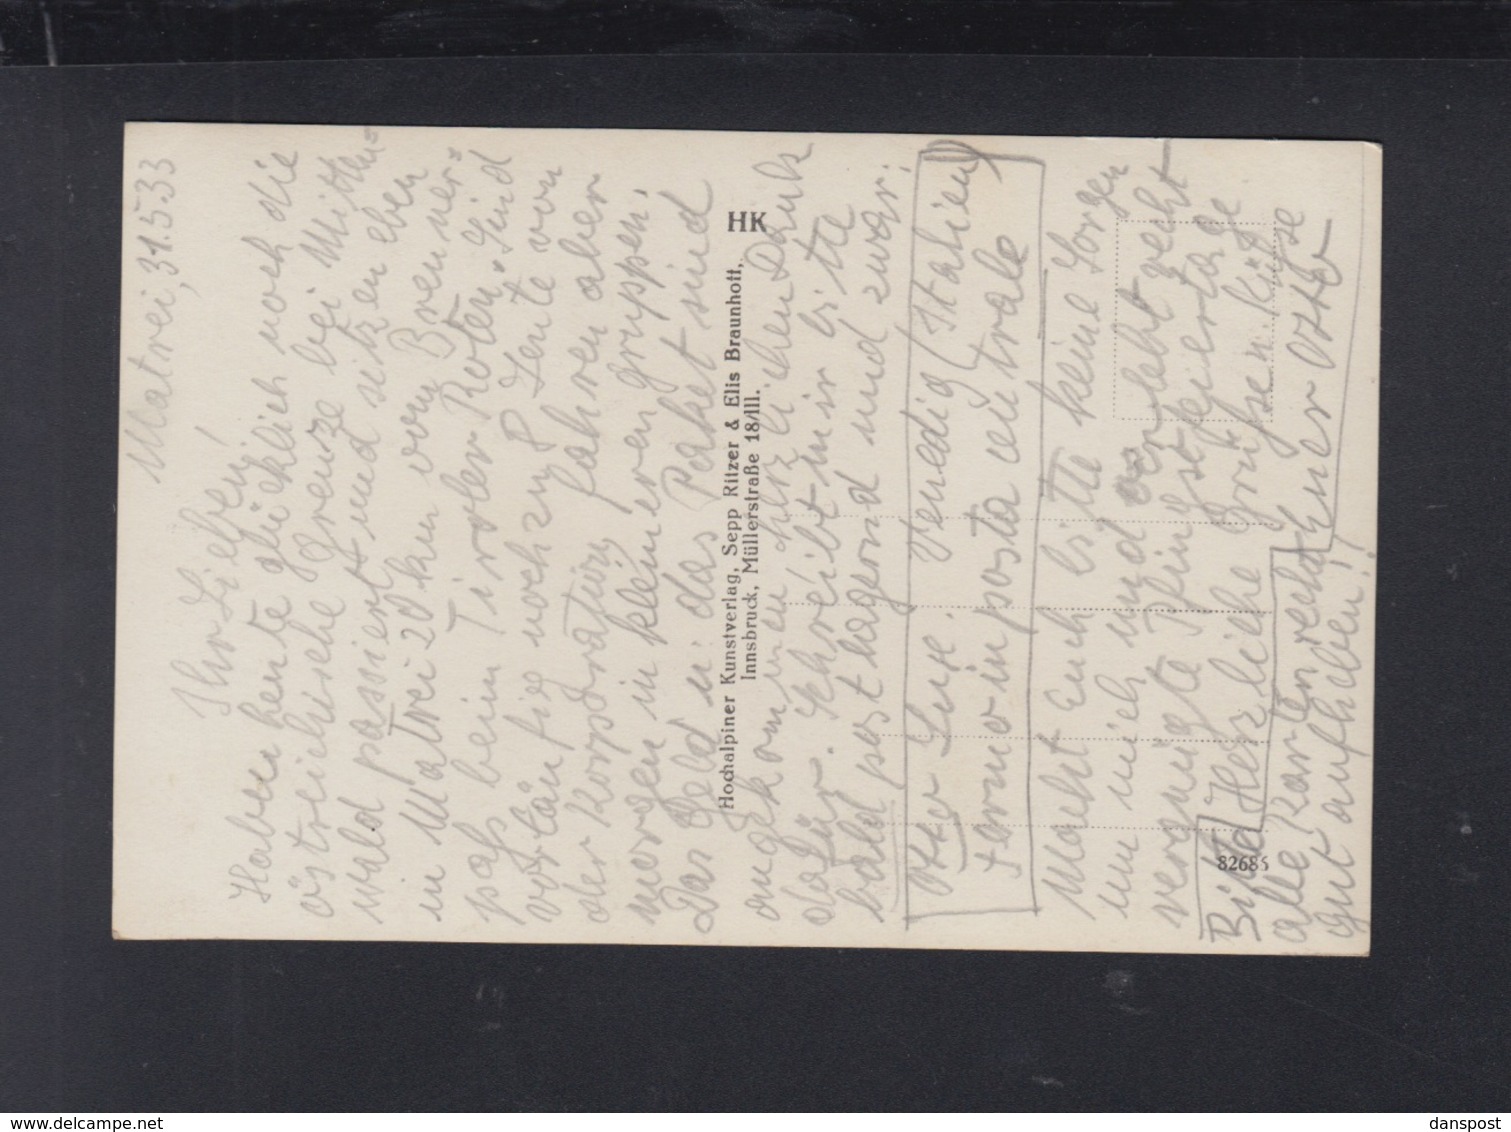 Matrei, 31.5.33
Ihr Lieben!
Haben heute glücklich noch die
östreichische Grenze bei Mitten=
wald passiert und sitzen eben
in Matrei 20 km vom Brenner=
pass beim Tiroler Roten. Sind
vorläufig noch zu 8 Leute von
der Korporation, fahren aber
morgen in kleineren Gruppen.
Das Geld u. das Paket sind
angekommen herzlichen Dank
dafür. Schreibt mir bitte
bald postlagernd und zwar:
Otto Venedig (Italien)
fermo in posta centrale
Macht Euch bitte keine Sorgen
um mich und verlebt recht
vergnügte Pfingstfeiertage
Herzliche Grüsse u. Küsse
Euer Otto
Bitte alle Karten recht
gut aufheben!
HK
Hochalpiner Kunstverlag, Sepp Ritzer & Elis Braunhott,
Innsbruck, Müllerstraße 18/III.
82685
danspost